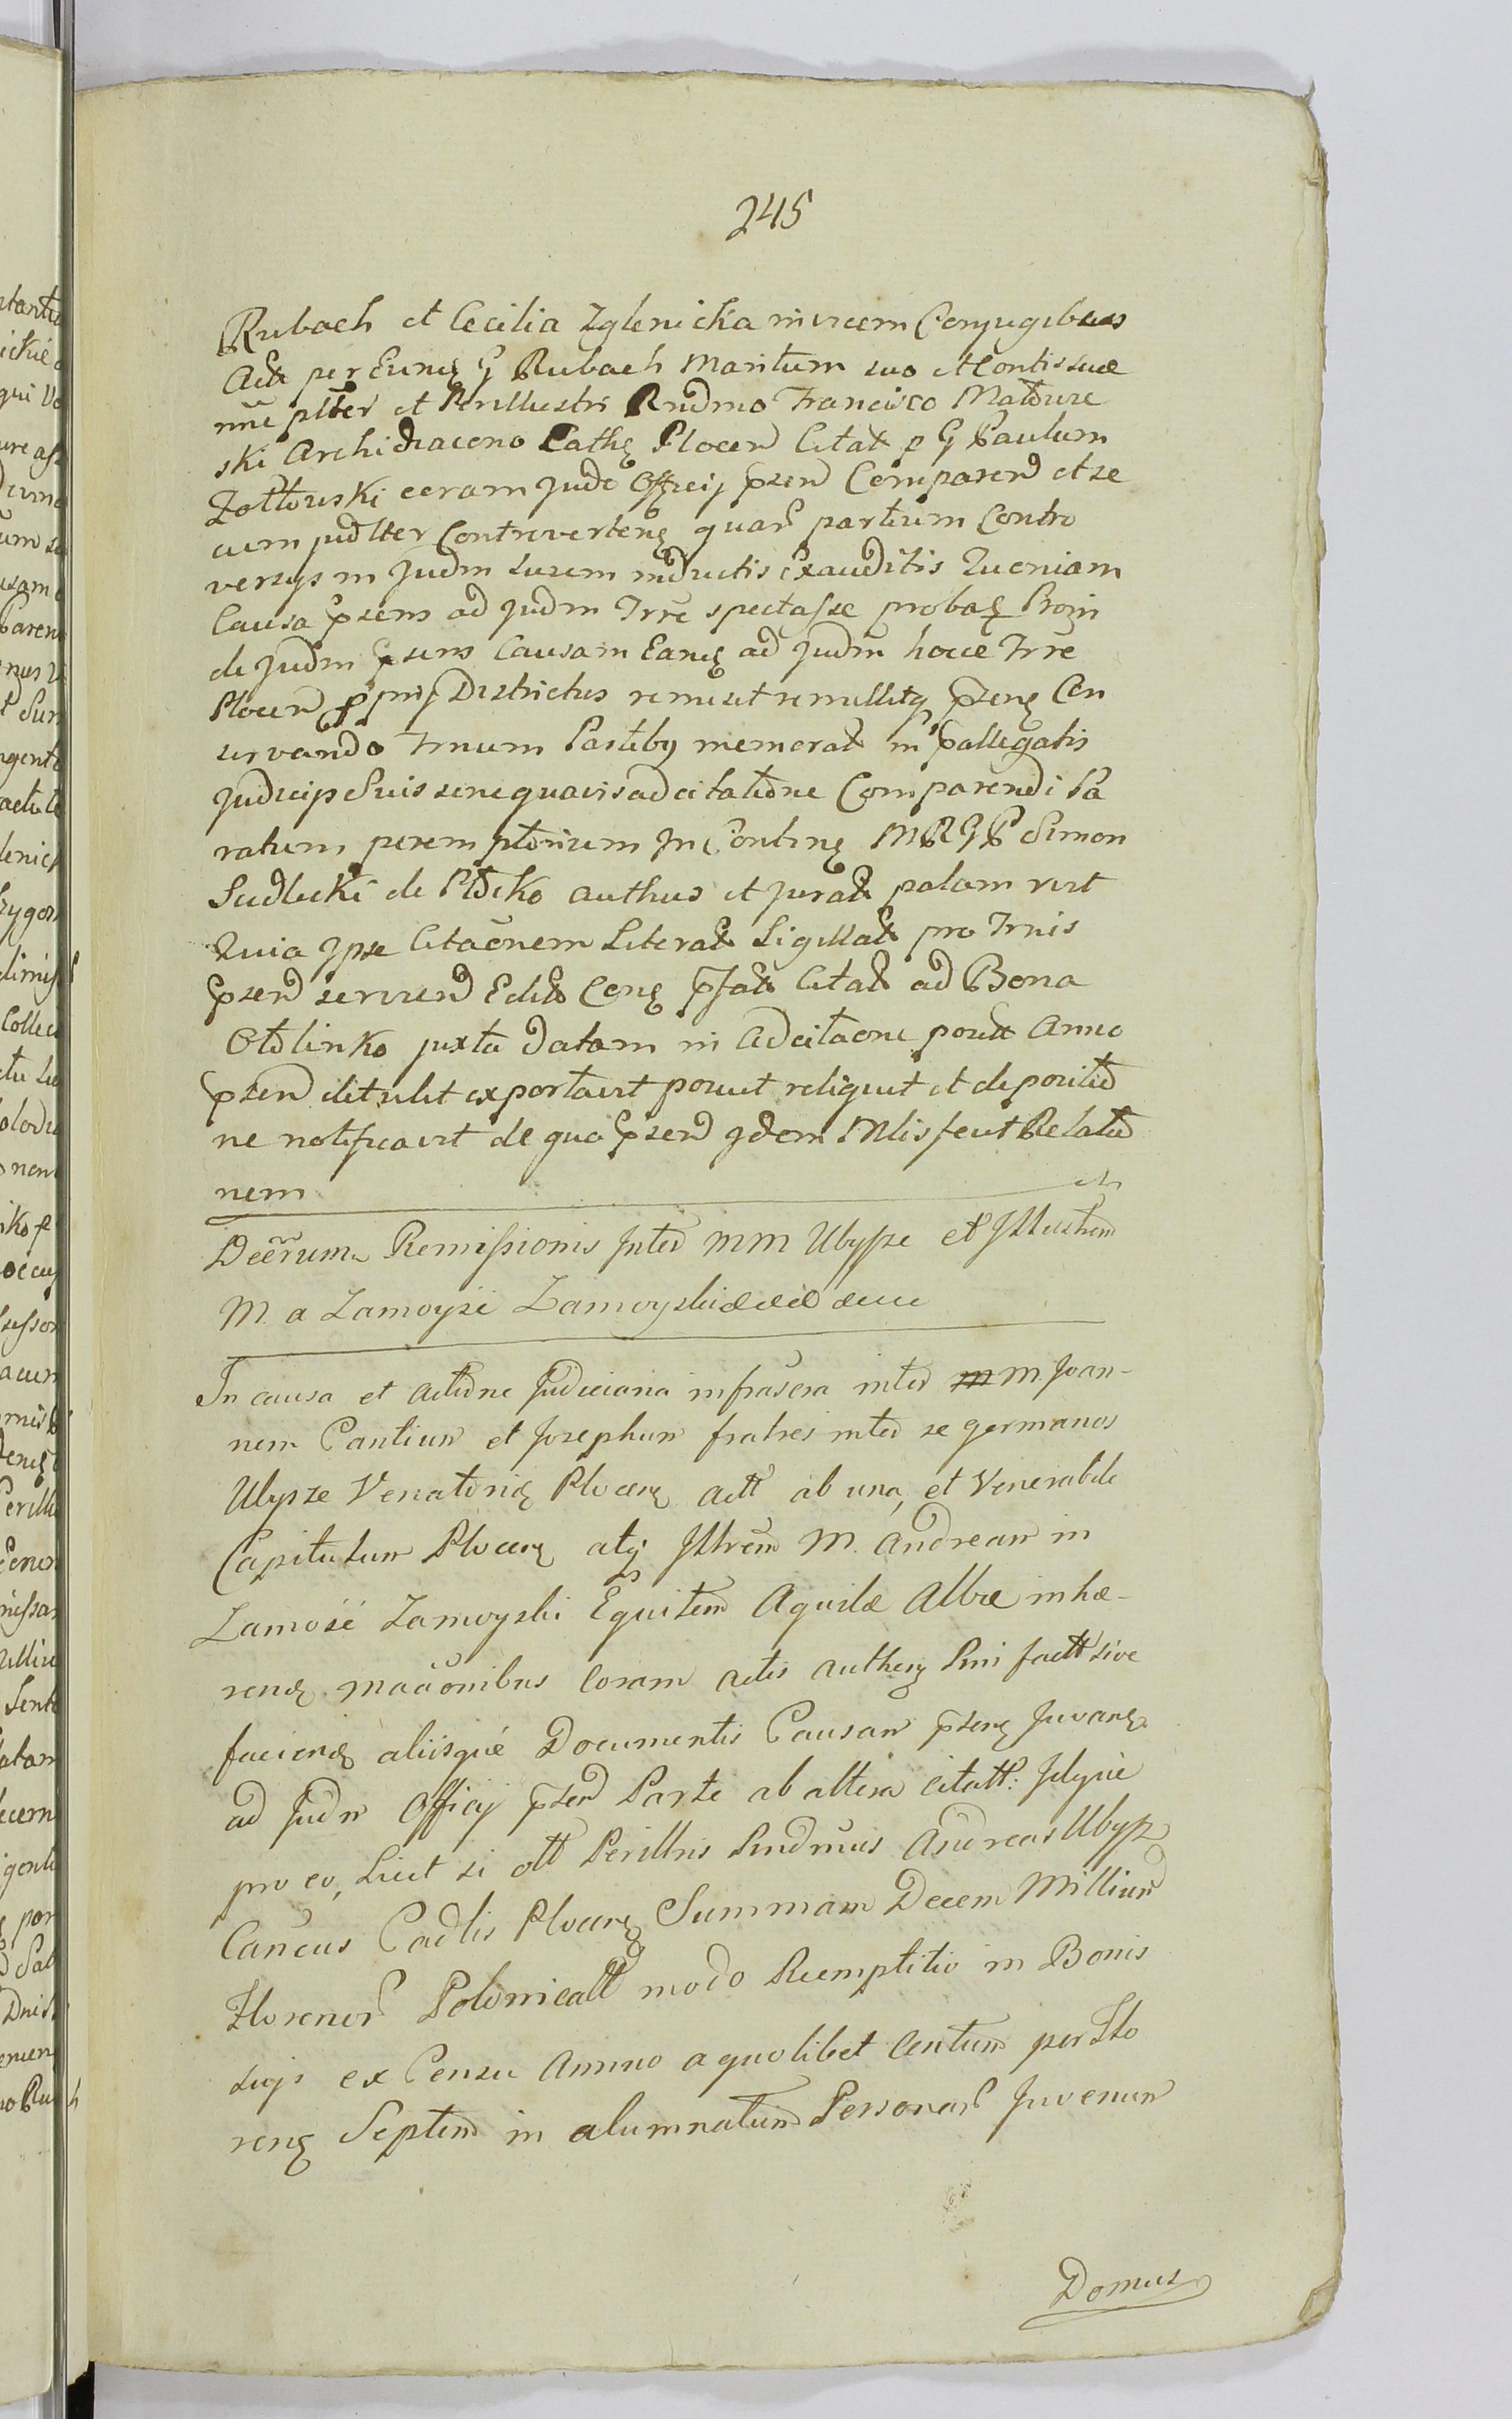 245
Rubach et Cecilia Zglenicka invicem Conjugibus
Act per Eunq G Rubach Maritum suo et Contis suæ
nñe plter et Perillustri Rndmo Francisco Mathure
ski Archidiacono Cathę Plocen Citat p G Paulum
Zołtowski coram Jude Officij pzen Comparen et se
cum judlter Controverteng quar partium Contro
versys in Judm suum inductis exauditis Quoniam
Causa pzens ad Judm Trre spectasse probat Proin
de Judm pzens Causam Eanq ad Judm hocce Trre
Plocen pmj Districtus remisit remittitq pzeng Con
servando Trnum Partiby memorat in pallegatis
Judicijs Suis sine quavis adcitatione Comparendi Pa
ratum peremptorium In Conting MRGP Simon
Sudlecki de Plocko authus et Jurat palam rvit
Quia Ipse Citaonem Literat Sigillat pro Trnis
pzen servien Edit Cong pfat Citat ad Bona
Otolinko juxta datam in Adcitaone posit Anno
pzen detulit exportavit posuit reliquit et depositio
ne notificavit de quo pzen gdem Mlis fecit Relatio
nem
Decrum Remissionis Inter MM Ulyssze et Illustrem
M. a Zamoysi Zamoyski
In causa et actione Judiciaria infrascra inter M. Joan-
nem Cantium et Josephum fratres inter se germanos
Ulysze Venatorid Plocen act ab una, et Venerabile
Capitulum Plocen atq Illrem M. Andream in
Zamośé Zamoyski Equitem Aquilæ Albæ inhæ-
rend maãonibus coram actis authen Pmi fact sive
faciend aliisque Documentis Causam pzeng Juvang
ad Judm Officij pzen Parte ab altera citatt: Idque
pro eo, Licet si olt Perillris Rndmus Andreas Ulysz
Cancus Cadlis Plocen Summam Decem Millium
Florenor Polonicalt modo Reemptitio in Bonis
suis ex Censu Annuo a quolibet Centum per Flo
reng Septem in alumnatum Personar Juvenum
Domus